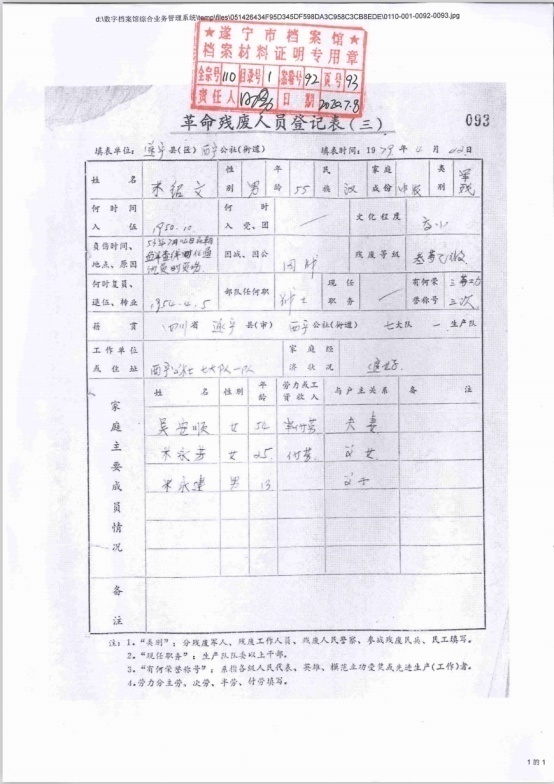 d:\数字档案馆综合业务管理系统\temp\files\051426434F95D345DF598DA3C958C3CB8EDE\0110-001-0092-0093.jpg
★遂宁市档案馆★
档案材料证明专用章
全宗号 110 目录号 1 案卷号 92 页号 93
责任人 日期 2020.7.8
革命残废人员登记表(三)
093
填表单位: 遂宁县(区) 西宁公社(街道) 填表时间: 1979年4月22日
姓名 米绍文 性别 男 年龄 55 民族 汉 家庭成份 中农 类别 军残
何时何间入伍 1950.10 何时入党、团 文化程度 高小
负伤时间、地点、原因 因战、因公 因战 残废等级 叁等乙级
何时复员、退伍、转业 1954.4.5 部队任何职 战士 现任职务 有何荣誉称号 三等功三次
籍贯 四川省 遂宁县(市) 西宁公社(街道) 七大队 一 生产队
工作单位或住址 西宁公社七大队一队 家庭经济状况
家庭主要成员情况
姓名 性别 年龄 劳力或工资收入 与户主关系 备注
女 52 夫妻
米永芳 女 25 付劳 父女
米永建 男 13 父子
备注
注: 1."类别": 分残废军人、残废工作人员、残废人民警察、参战残废民兵、民工填写。
2."现任职务": 生产队队委以上干部。
3."有何荣誉称号": 系指各级人民代表、英雄、模范立功受奖或先进生产(工作)者。
4.劳力分主劳、次劳、半劳、付劳填写。
1 的 1